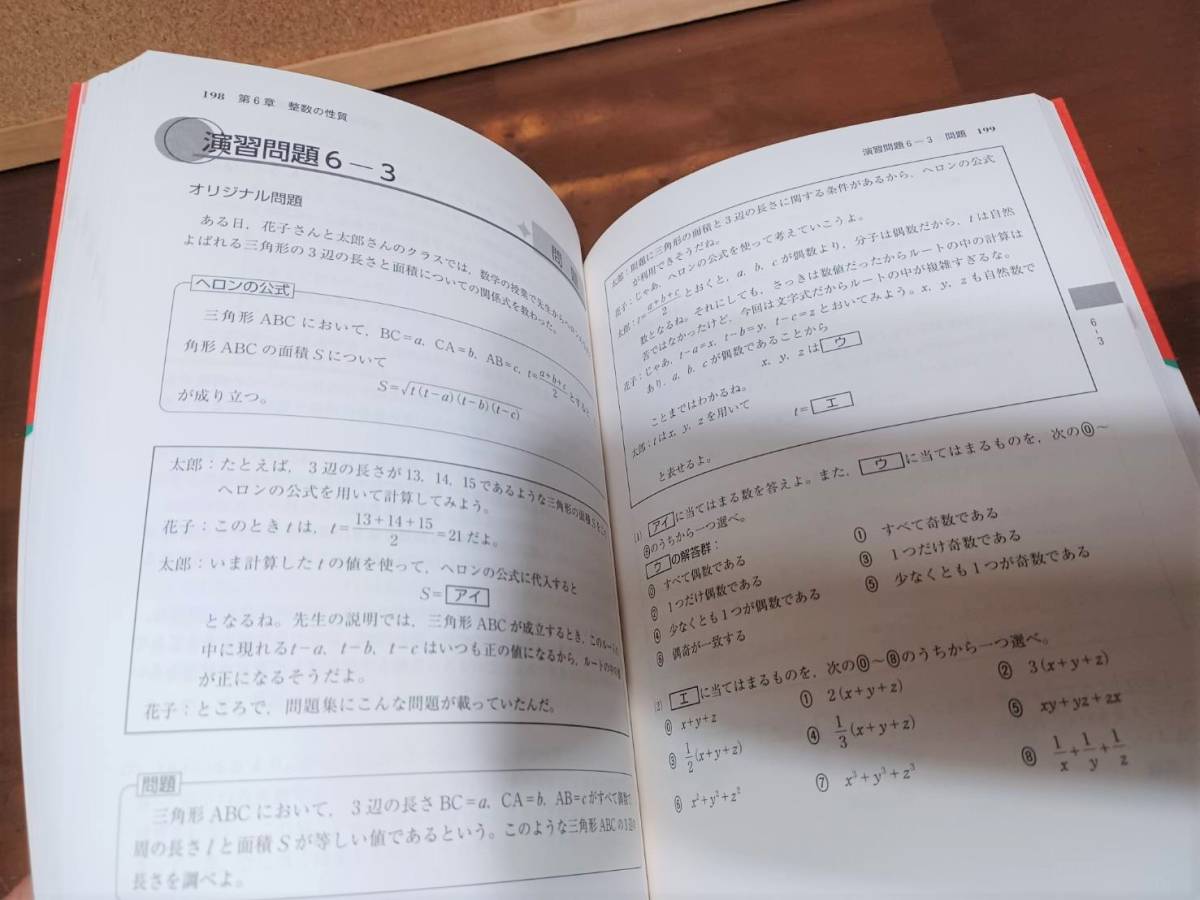 198 第6章 整数の性質
演習問題6−3
オリジナル問題
問
ある日，花子さんと太郎さんのクラスでは，数学の授業で先生から
よばれる三角形の3辺の長さと面積についての関係式を教わった。
ヘロンの公式
三角形ABCにおいて，BC=a，CA=b，AB=c，t=\frac{a+b+c}{2}とすると，
角形ABCの面積Sについて
S=√t(t−a)(t−b)(t−c)
が成り立つ。
太郎：たとえば，3辺の長さが13，14，15であるような三角形の面積を
ヘロンの公式を用いて計算してみよう。
花子：このときtは，t=\frac{13+14+15}{2}=21だよ。
太郎：いま計算したtの値を使って，ヘロンの公式に代入すると
S=アイ
となるね。先生の説明では，三角形ABCが成立するとき，このルートの
中に現れるt−a，t−b，t−cはいつも正の値になるから，ルートの中の
が正になるそうだよ。
花子：ところで，問題集にこんな問題が載っていたんだ。
問題
三角形ABCにおいて，3辺の長さBC=a，CA=b，AB=cがすべて偶数で
周の長さlと面積Sが等しい値であるという。このような三角形ABCの3辺の
長さを調べよ。
演習問題6−3 問題 199
太郎：問題に三角形の面積と3辺の長さに関する条件があるから，ヘロンの公式
が利用できそうだね。
花子：じゃあ，ヘロンの公式を使って考えていこうよ。
太郎：t=\frac{a+b+c}{2}とおくと，a，b，cが偶数より，分子は偶数だから，tは自然
数となるね。それにしても，さっきは数値だったからルートの中の計算は
苦ではなかったけど，今回は文字式だからルートの中が複雑すぎるな。
花子：じゃあ，t−a=x，t−b=y，t−c=zとおいてみよう。x，y，zも自然数で
あり，a，b，cが偶数であることから
x，y，zはウ
ことまではわかるね。
太郎：tはx，y，zを用いて
t=エ
と表せるよ。
6
3
(1) アイに当てはまる数を答えよ。また，ウに当てはまるものを，次の⓪〜
⑥のうちから一つ選べ。
ウの解答群：
⓪ すべて偶数である
① すべて奇数である
② 1つだけ偶数である
③ 1つだけ奇数である
④ 少なくとも1つが偶数である
⑤ 少なくとも1つが奇数である
⑥ 偶奇が一致する
(2) エに当てはまるものを，次の⓪〜⑧のうちから一つ選べ。
⓪ x+y+z
① 2(x+y+z)
② 3(x+y+z)
③ \frac{1}{2}(x+y+z)
④ \frac{1}{3}(x+y+z)
⑤ xy+yz+zx
⑥ x²+y²+z²
⑦ x³+y³+z³
⑧ \frac{1}{x}+\frac{1}{y}+\frac{1}{z}